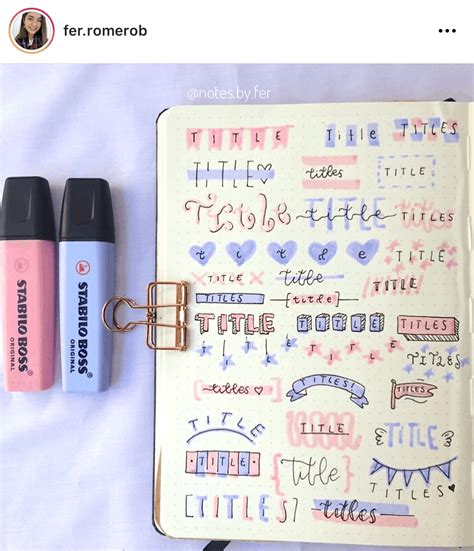 fer.romerob
@notes.by.fer
TITLE Title TITLES
TITLE♡ titles TITLE
Title title TITLES
title TITLE
TITLE title TITLE
TITLES {title}
TITLE TITLE TITLES
TITLE TITLE TITLES
titles ♡ TITLES! TITLE
TITLE TITLE TITLE
TITLE {title} TITLES♡
[TITLES] titles
STABILO BOSS
ORIGINAL
STABILO BOSS
ORIGINAL